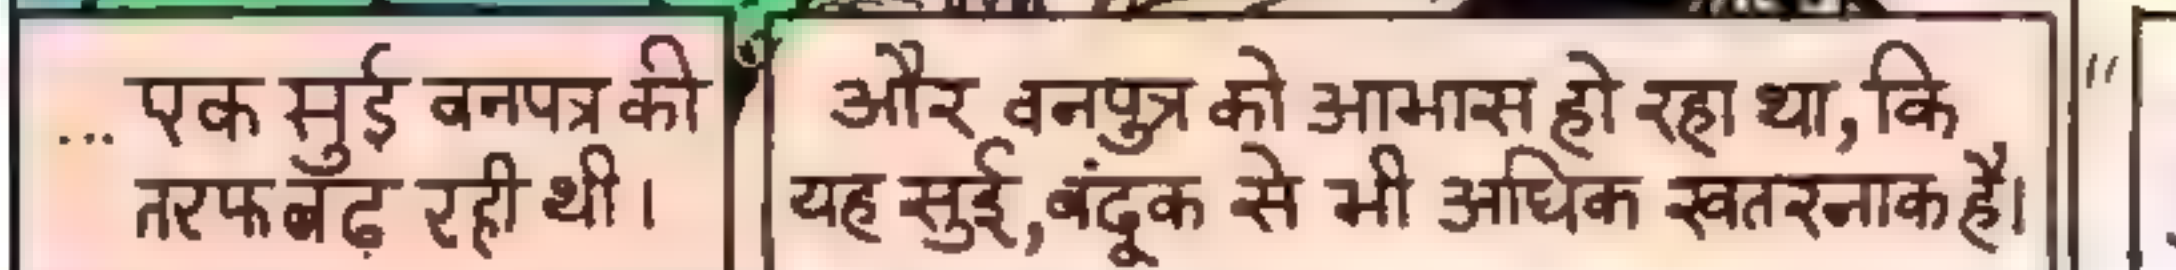 ... एक सुई वनपत्र की
तरफ बढ़ रही थी।
और वनपुत्र को आभास हो रहा था, कि
यह सुई, बंदूक से भी अधिक खतरनाक है।